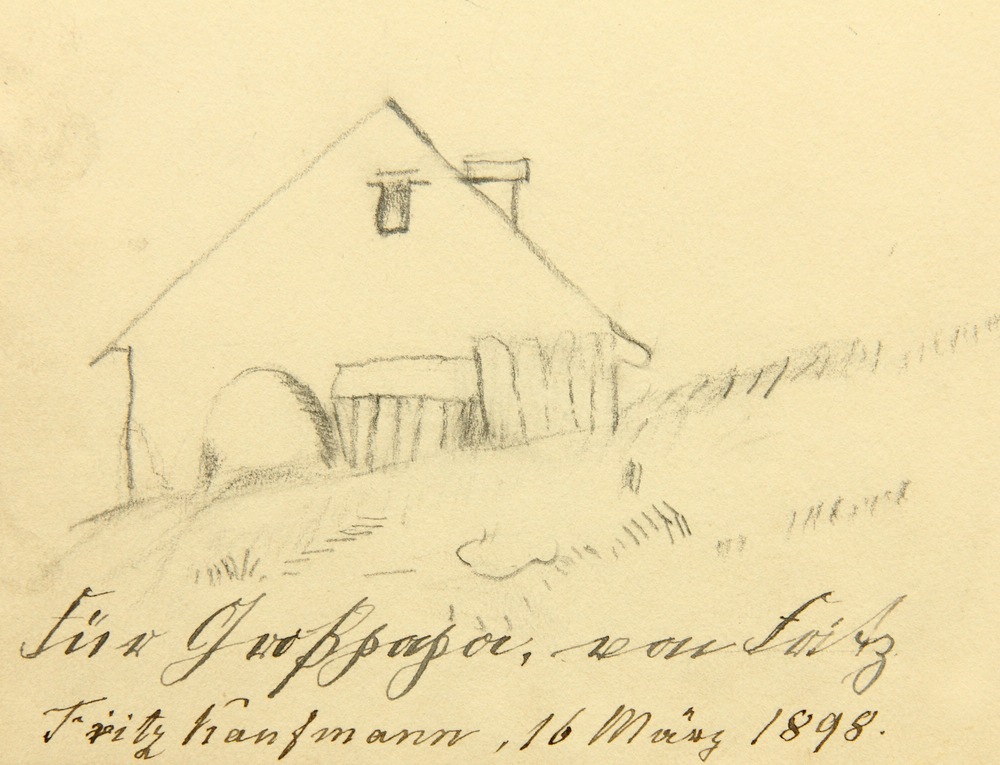 Für Großpapa, von Fritz
Fritz Kaufmann, 16 März 1898.